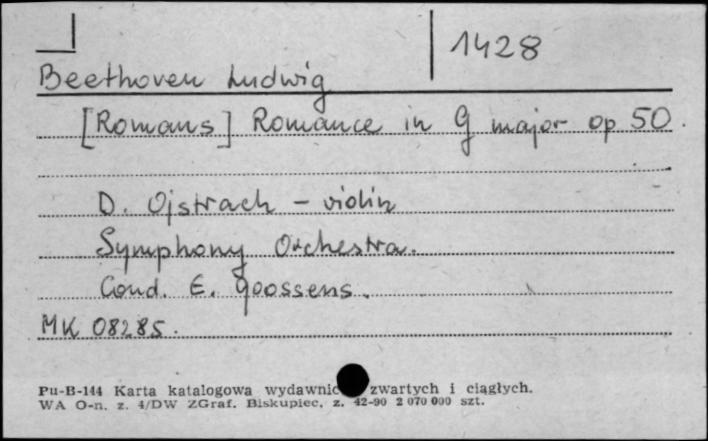 1428
Beethoven Ludwig
[Romans] Romance in G major op 50.
D. Ojstrach – violin
Symphony Orchestra.
Cond. E. Goossens.
MK 08285.
Pu-B-144 Karta katalogowa wydawnic zwartych i ciągłych.
WA O-n. z. 4/DW ZGraf. Biskupiec, z. 42-90 2 070 000 szt.